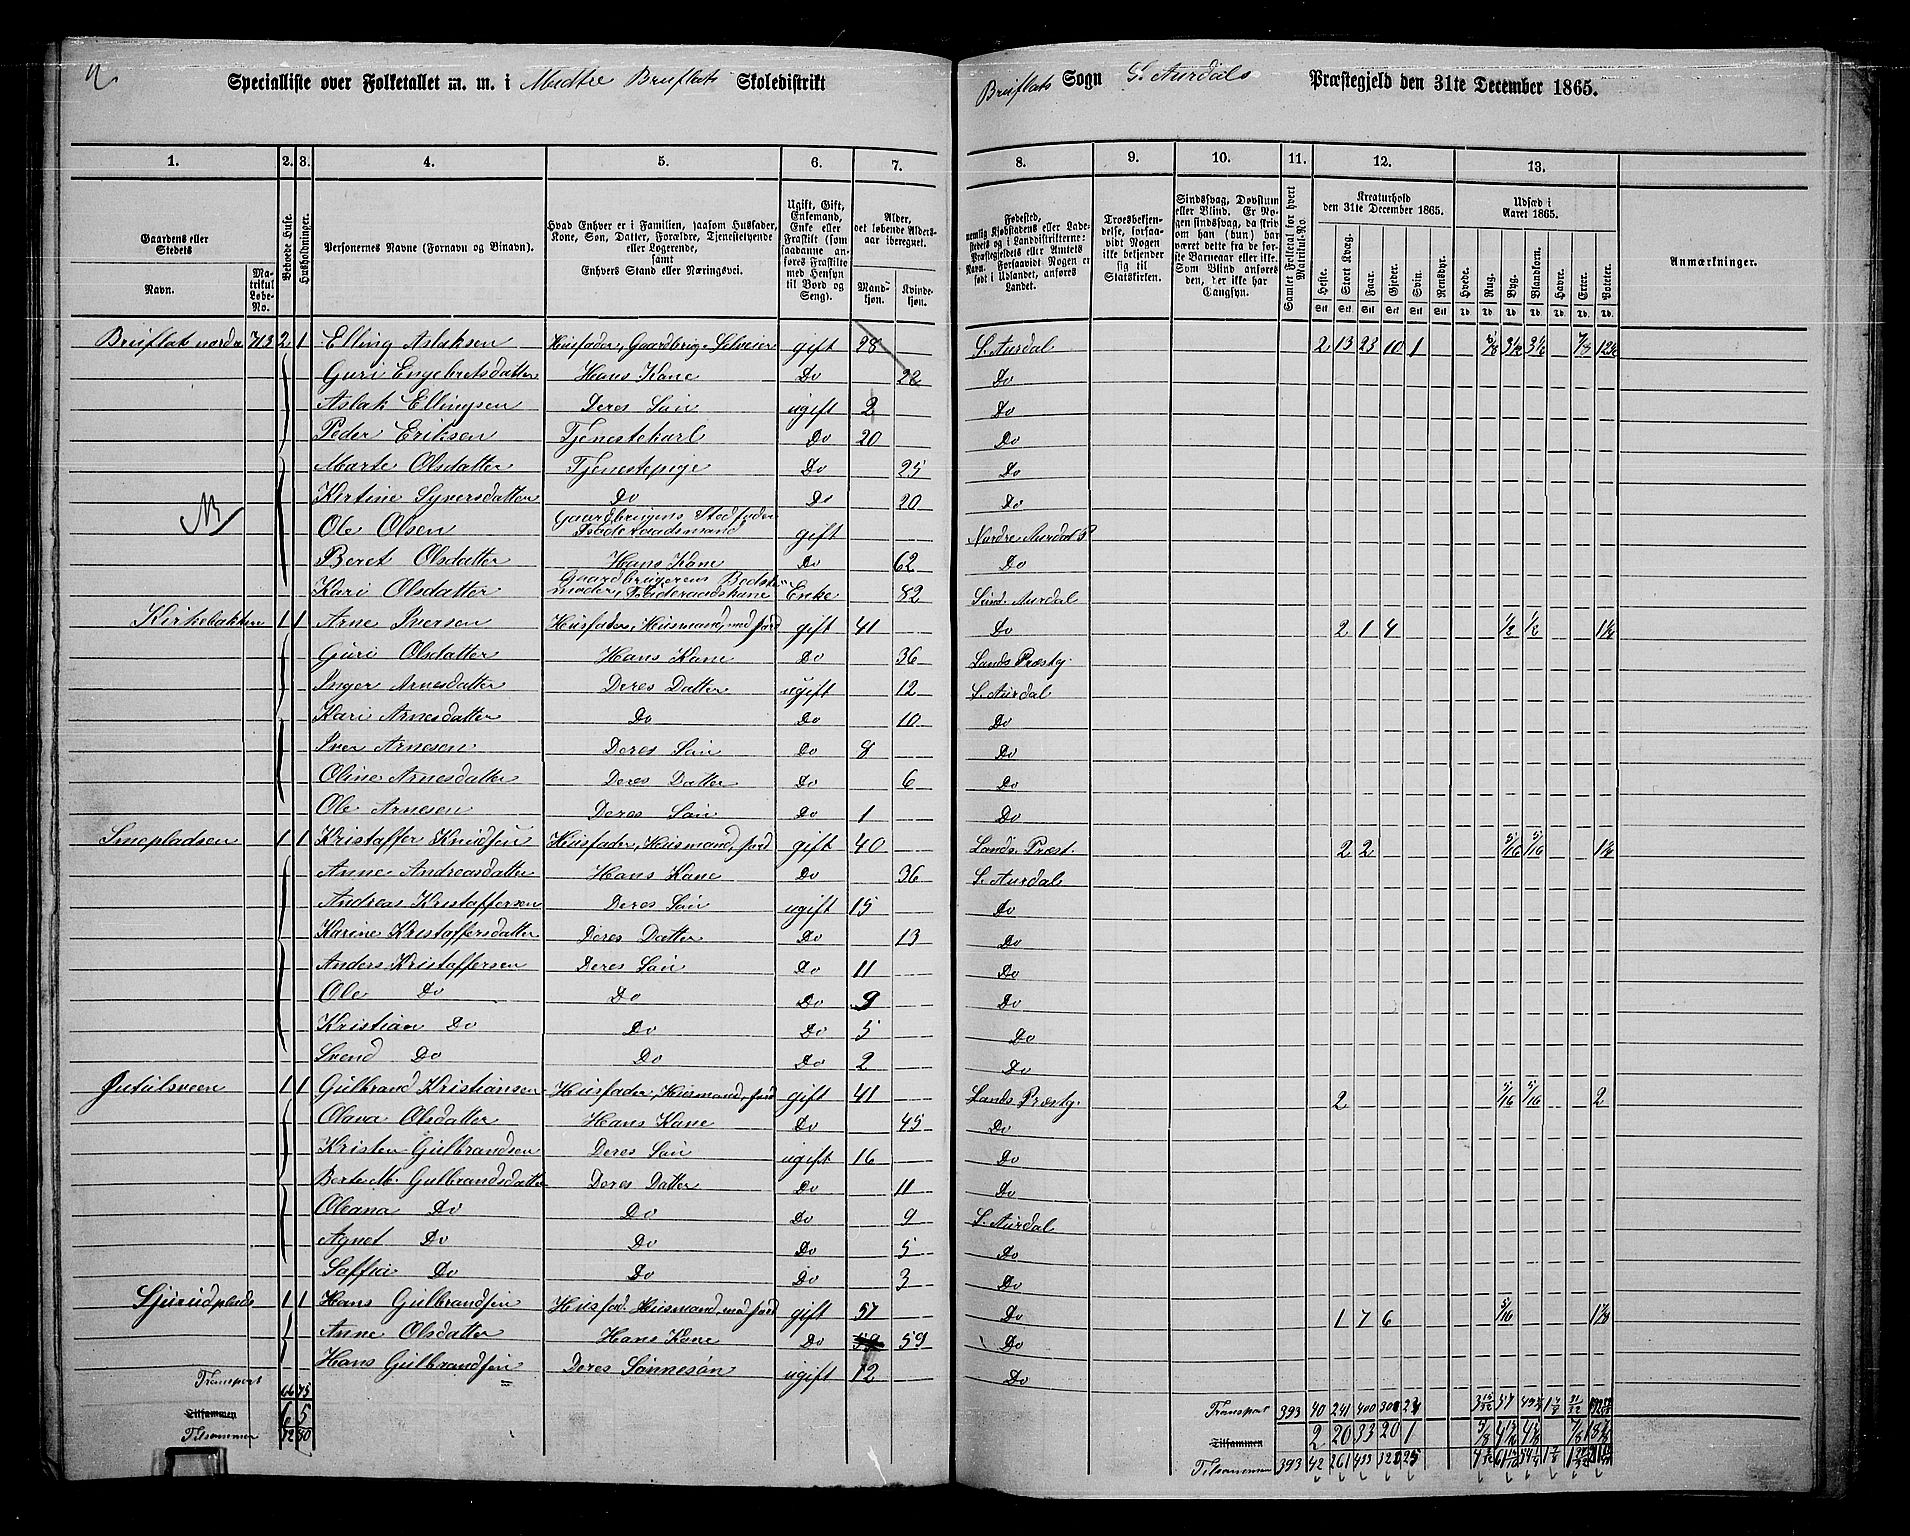 Specialliste over Folketallet m. m. i Midtre Bruflats Skoledistrikt Bruflats Sogn S. Aurdals Præstegjeld den 31te December 1865.
1. 2. 3. 4. 5. 6. 7. 8. 9. 10. 11. 12. 13.
Gaardens eller Stedets
Navn.
Matrikul Løbe-No.
Beboede Huse.
Husholdninger.
Personernes Navne (Fornavn og Binavn).
Hvad Enhver er i Familien, saasom Husfader, Kone, Søn, Datter, Forældre, Tjenestetyende eller Logerende,
samt
Enhvers Stand eller Næringsvei.
Ugift, Gift, Enkemand, Enke eller Fraskilt (som saadanne anføres Fraskilte med Hensyn til Bord og Seng).
Alder, det løbende Aldersaar iberegnet.
Mandkjøn. Kvindekjøn.
Fødested, nemlig Kjøbstadens eller Ladestedets og i Landdistrikterne: Præstegjeldets eller Amtets Navn. Forsaavidt Nogen er født i Udlandet, anføres Landet.
Troesbekjendelse, forsaavidt Nogen ikke bekjender sig til Statskirken.
Sindssvag, Døvstum eller Blind. Er Nogen sindssvag, da skriv om han (hun) har været dette fra de første Barneaar eller ikke. Som Blind anføres den, der ikke har Gangsyn.
Samlet Folketal for hvert Matrikul-No.
Kreaturhold den 31te December 1865.
Heste. Stort Kvæg. Faar. Gjeder. Svin. Rensdyr.
Udsæd i Aaret 1865.
Hvede. Rug. Byg. Blandkorn. Havre. Erter. Poteter.
Anmærkninger.
Bruflat nordre 713 2 1 Elling Aslaksen Husfader, Gaardbrug. Selveier gift 28 S. Aurdal 2 13 23 10 1
Guri Engebretsdatter Hans Kone Do 22 Do
Aslak Ellingsen Deres Søn ugift 2 Do
Peder Eriksen Tjenestekarl Do 20 Do
Marte Olsdatter Tjenestepige Do 25 Do
Kirtine Syversdatter Do Do 20 Do
Ole Olsen Gaardbrugerens Stedfader Føderaadsmand gift Nordre Aurdal P
Beret Olsdatter Hans Kone Do 62 Do
Kari Olsdatter Gaardbrugerens Bedstemoder, Føderaadskone Enke 82 Sønd. Aurdal
Kirkebakken 1 1 Arne Iversen Husfader, Husmand, med Jord gift 41 Do 2 1 4 1/2 1/2
Guri Olsdatter Hans Kone Do 36 Lands Præstg.
Inger Arnesdatter Deres Datter ugift 12 S. Aurdal
Kari Arnesdatter Do Do 10 Do
Iver Arnesen Deres Søn Do 8 Do
Oline Arnesdatter Deres Datter Do 6 Do
Ole Arnesen Deres Søn Do 1 Do
Smepladsen 1 1 Kristaffer Knudsen Husfader, Husmand, Jord gift 40 Lands Præst. 2 2 5/16 5/16
Anne Andreasdatter Hans Kone Do 36 S. Aurdal
Andreas Kristaffersen Deres Søn ugift 15 Do
Karine Kristaffersdatter Deres Datter Do 13 Do
Anders Kristaffersen Deres Søn Do 11 Do
Ole Do Do Do 9 Do
Kristian Do Do Do 5 Do
Svend Do Do Do 2 Do
1 1 Gulbrand Kristiansen Husfader, Husmand, Jord gift 41 Lands Præstg. 2 5/16 5/16 2
Olava Olsdatter Hans Kone Do 45 Do
Kristen Gulbrandsen Deres Søn ugift 16 Do
Berte M. Gulbrandsdatter Deres Datter Do 11 Do
Oleana Do Do Do 9 S. Aurdal
Agnet Do Do Do 5 Do
Saffia Do Do Do 3 Do
1 1 Hans Gulbrandsen Husfad. Husmand, med Jord gift 57 Do 1 7 6 5/16
Anne Olsdatter Hans Kone Do 59 Do
Hans Gulbrandsen Deres Sønnesøn ugift 12 Do
Transport 66 75 Transport 393 40 241 400 24
Tilsammen 6 5 Tilsammen 2 20 33 20 1
Tilsammen 72 80 Tilsammen 393 42 261 433 25